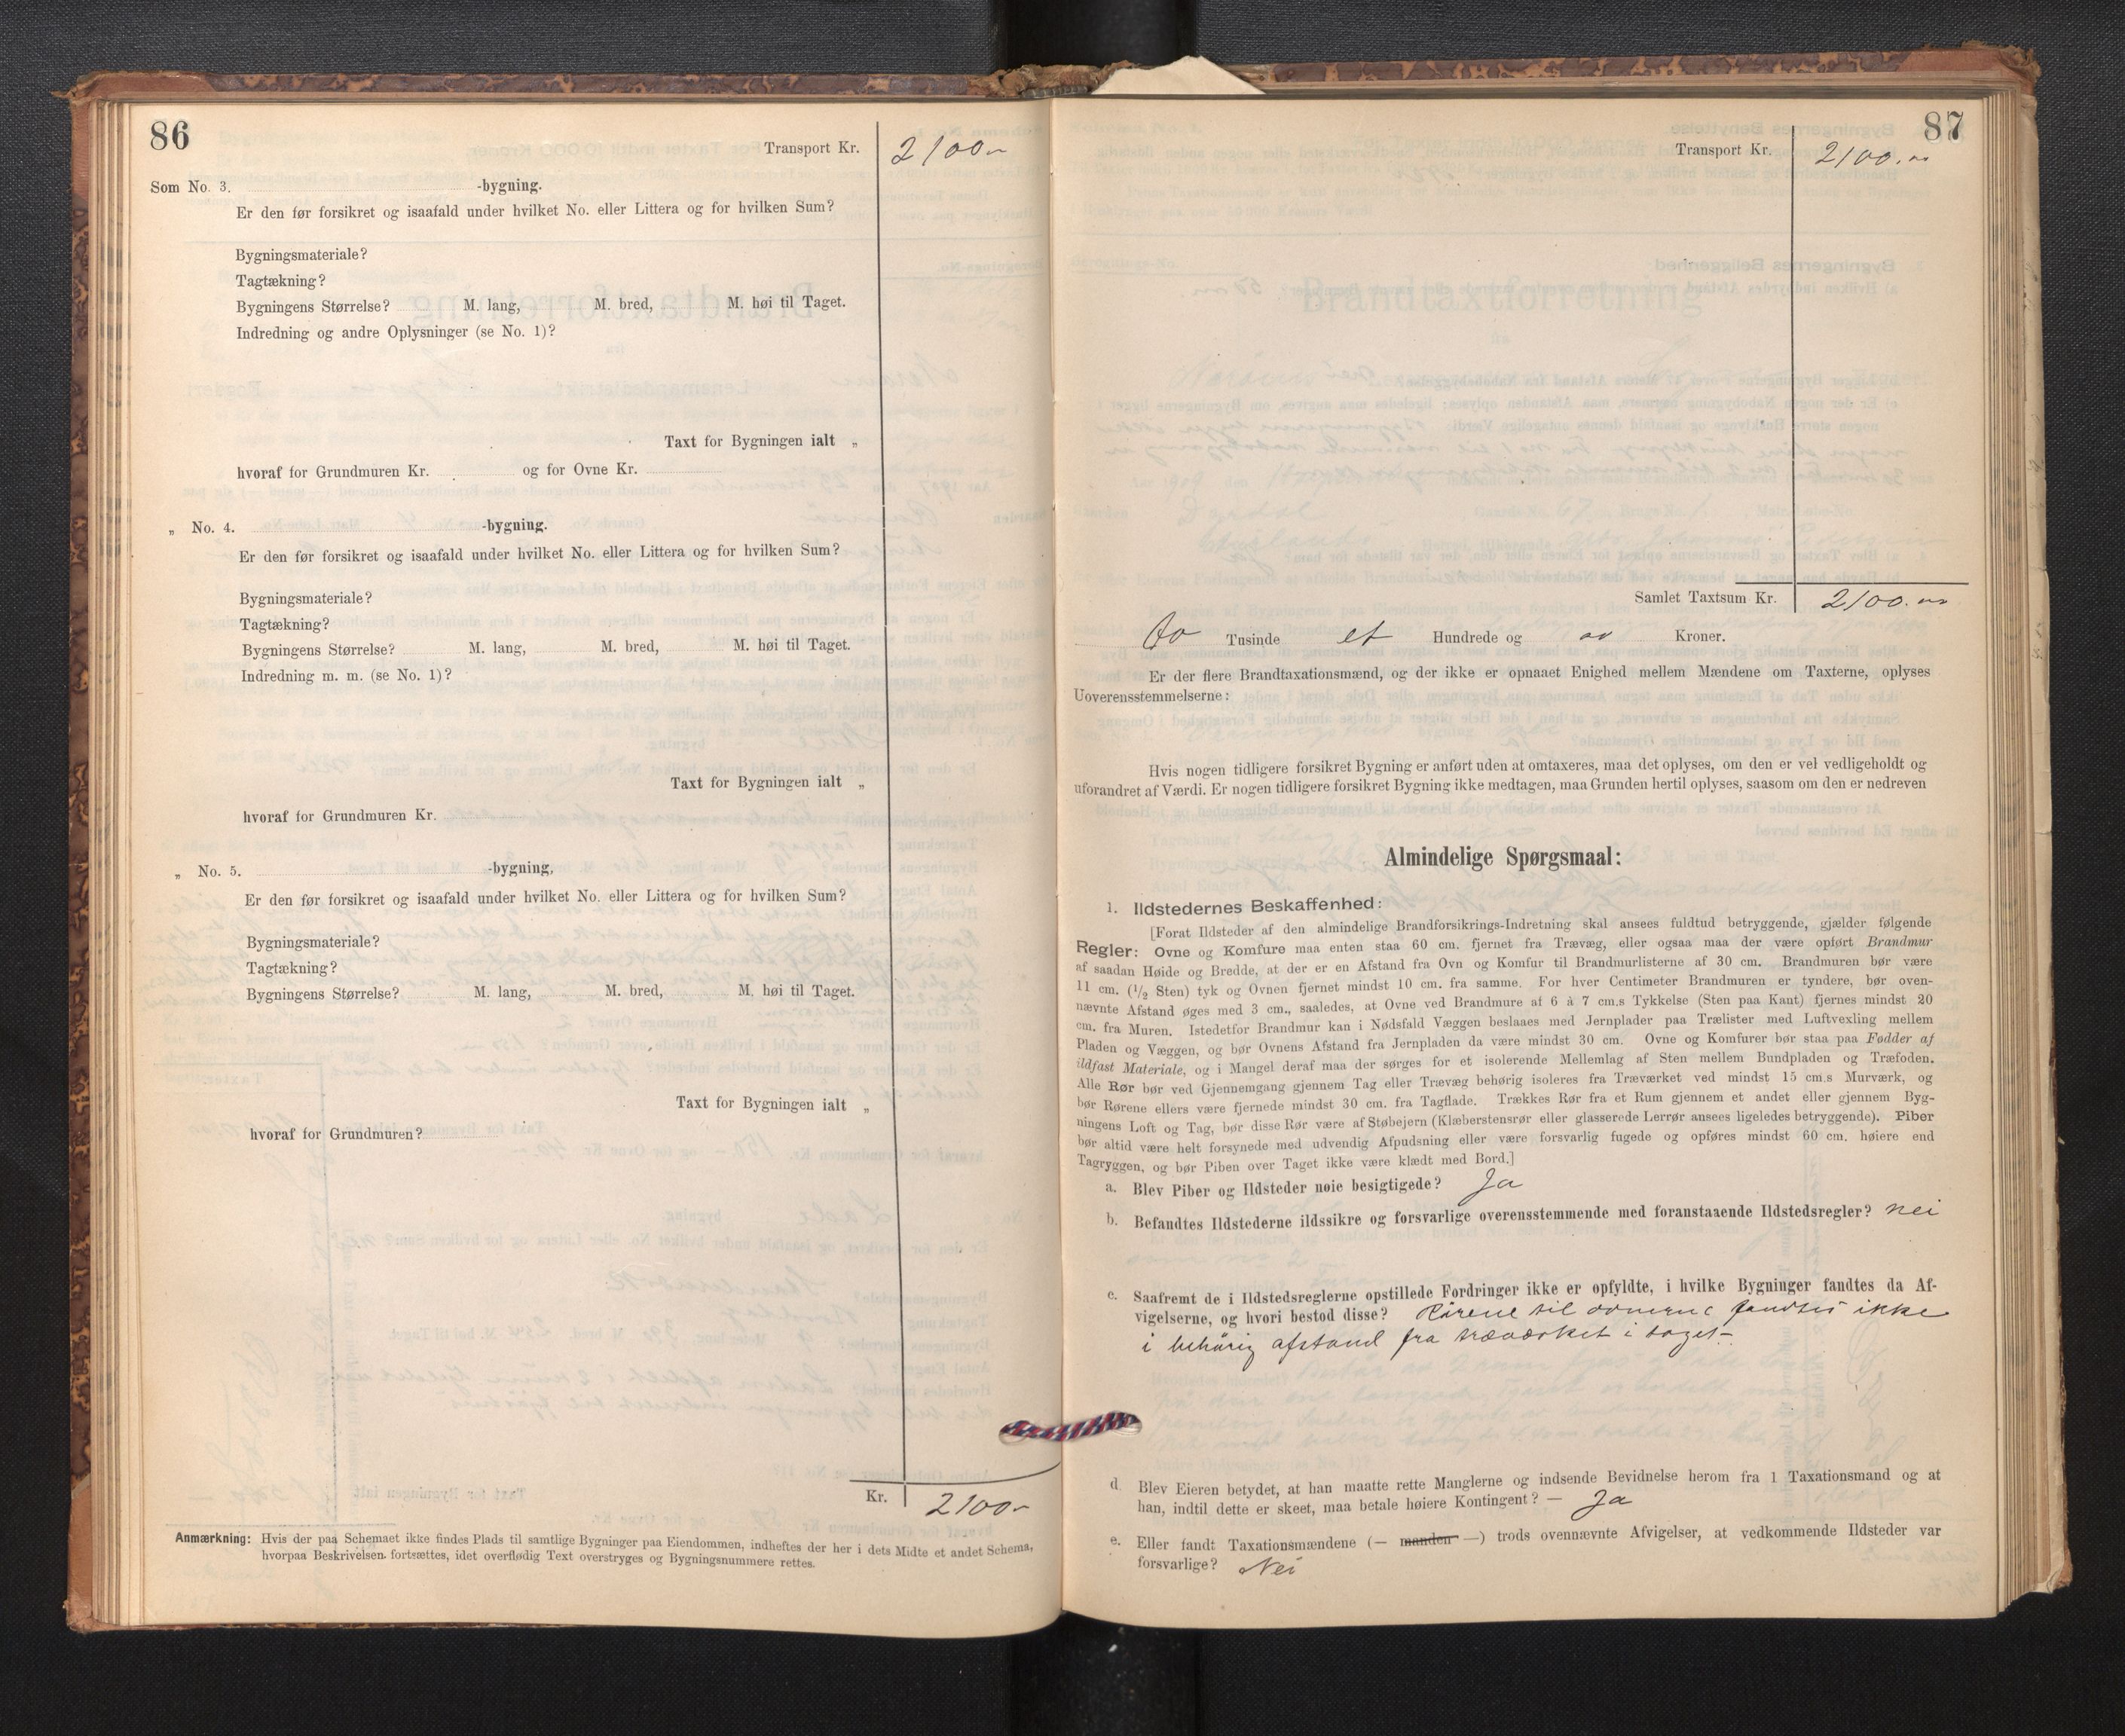 86
Transport Kr. 2100 „
Som No. 3. -bygning.
Er den før forsikret og isaafald under hvilket No. eller Littera og for hvilken Sum?
Bygningsmateriale?
Tagtækning?
Bygningens Størrelse? M. lang, M. bred, M. høi til Taget.
Indredning og andre Oplysninger (se No. 1)?
Taxt for Bygningen ialt „
hvoraf for Grundmuren Kr. og for Ovne Kr.
„ No. 4. -bygning.
Er den før forsikret og isaafald under hvilket No. eller Littera og for hvilken Sum?
Bygningsmateriale?
Tagtækning?
Bygningens Størrelse? M. lang, M. bred, M. høi til Taget.
Indredning m. m. (se No. 1)?
Taxt for Bygningen ialt „
hvoraf for Grundmuren Kr.
„ No. 5. -bygning,
Er den før forsikret og isaafald under hvilket No. eller Littera og for hvilken Sum?
Bygningsmateriale?
Tagtækning?
Bygningens Størrelse? M. lang, M. bred, M. høi til Taget.
Taxt for Bygningen ialt „
hvoraf for Grundmuren?
Kr. 2100 „
Anmærkning: Hvis der paa Schemaet ikke findes Plads til samtlige Bygninger paa Eiendommen, indheftes der her i dets Midte et andet Schema,
hvorpaa Beskrivelsen fortsættes, idet overflødig Text overstryges og Bygningsnummere rettes.
87
Transport Kr. 2100. „
Samlet Taxtsum Kr. 2100. „
to Tusinde et Hundrede og „ Kroner.
Er der flere Brandtaxationsmænd, og der ikke er opnaaet Enighed mellem Mændene om Taxterne, oplyses
Uoverensstemmelserne:
Hvis nogen tidligere forsikret Bygning er anført uden at omtaxeres, maa det oplyses, om den er vel vedligeholdt og
uforandret af Værdi. Er nogen tidligere forsikret Bygning ikke medtagen, maa Grunden hertil oplyses, saasom om den er nedreven
Almindelige Spørgsmaal:
1. Ildstedernes Beskaffenhed:
[Forat Ildsteder af den almindelige Brandforsikrings-Indretning skal ansees fuldtud betryggende, gjælder følgende
Regler: Ovne og Komfure maa enten staa 60 cm. fjernet fra Trævæg, eller ogsaa maa der være opført Brandmur
af saadan Høide og Bredde, at der er en Afstand fra Ovn og Komfur til Brandmurlisterne af 30 cm. Brandmuren bør være
11 cm. (1/2 Sten) tyk og Ovnen fjernet mindst 10 cm. fra samme. For hver Centimeter Brandmuren er tyndere, bør oven-
nævnte Afstand øges med 3 cm., saaledes, at Ovne ved Brandmure af 6 à 7 cm.s Tykkelse (Sten paa Kant) fjernes mindst 20
cm. fra Muren. Istedetfor Brandmur kan i Nødsfald Væggen beslaaes med Jernplader paa Trælister med Luftvexling mellem
Pladen og Væggen, og bør Ovnens Afstand fra Jernpladen da være mindst 30 cm. Ovne og Komfurer bør staa paa Fødder af
ildfast Materiale, og i Mangel deraf maa der sørges for et isolerende Mellemlag af Sten mellem Bundpladen og Træfoden.
Alle Rør bør ved Gjennemgang gjennem Tag eller Trævæg behørig isoleres fra Træværket ved mindst 15 cm.s Murværk, og
bør Rørene ellers være fjernede mindst 30 cm. fra Tagflade. Trækkes Rør fra et Rum gjennem et andet eller gjennem Byg-
ningens Loft og Tag, bør disse Rør være af Støbejern (Klæberstensrør eller glasserede Lerrør ansees ligeledes betryggende). Piber
bør altid være helt forsynede med udvendig Afpudsning eller være forsvarlig fugede og opføres mindst 60 cm. høiere end
Tagryggen, og bør Piben over Taget ikke være klædt med Bord.]
a. Blev Piber og Ildsteder nøie besigtigede? Ja
b. Befandtes Ildstederne ildssikre og forsvarlige overensstemmende med foranstaaende Ildstedsregler? nei
c. Saafremt de i Ildstedsreglerne opstillede Fordringer ikke er opfyldte, i hvilke Bygninger fandtes da Af-
vigelserne, og hvori bestod disse? Rörene til ovnerne fandtes ikke
i behörig afstand fra træværket i taget.
d. Blev Eieren betydet, at han maatte rette Manglerne og indsende Bevidnelse herom fra 1 Taxationsmand og at
han, indtil dette er skeet, maa betale høiere Kontingent? — Ja
e. Eller fandt Taxationsmændene (— manden —) trods ovennævnte Afvigelser, at vedkommende Ildsteder var
forsvarlige? Nei